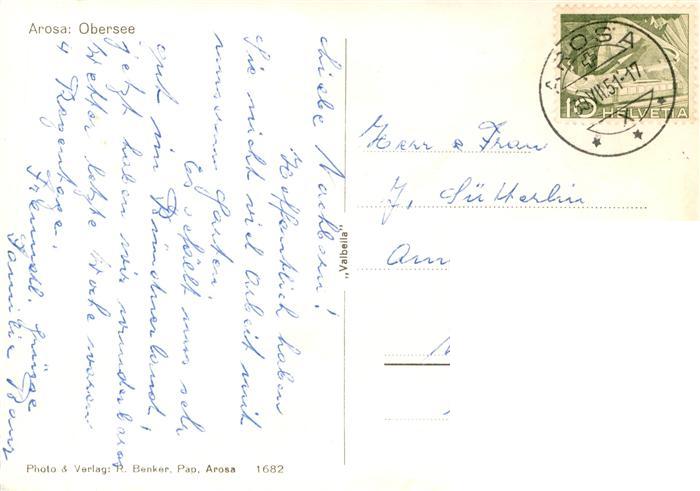 Arosa: Obersee
Liebe Nachbarn!
Hoffentlich haben
Sie nicht viel Arbeit mit
unserem Garten.
Es gefällt uns sehr
gut im Bündnerland!
Jetzt haben wir wunderbares
Wetter letzte Woche waren
4 Regentage.
Freundl. Grüsse
Familie
"Valbella"
Herr & Frau
J. Sütterlin
Am
AROSA
51-17
10
HELVETIA
Photo & Verlag: R. Benker, Pap, Arosa 1682